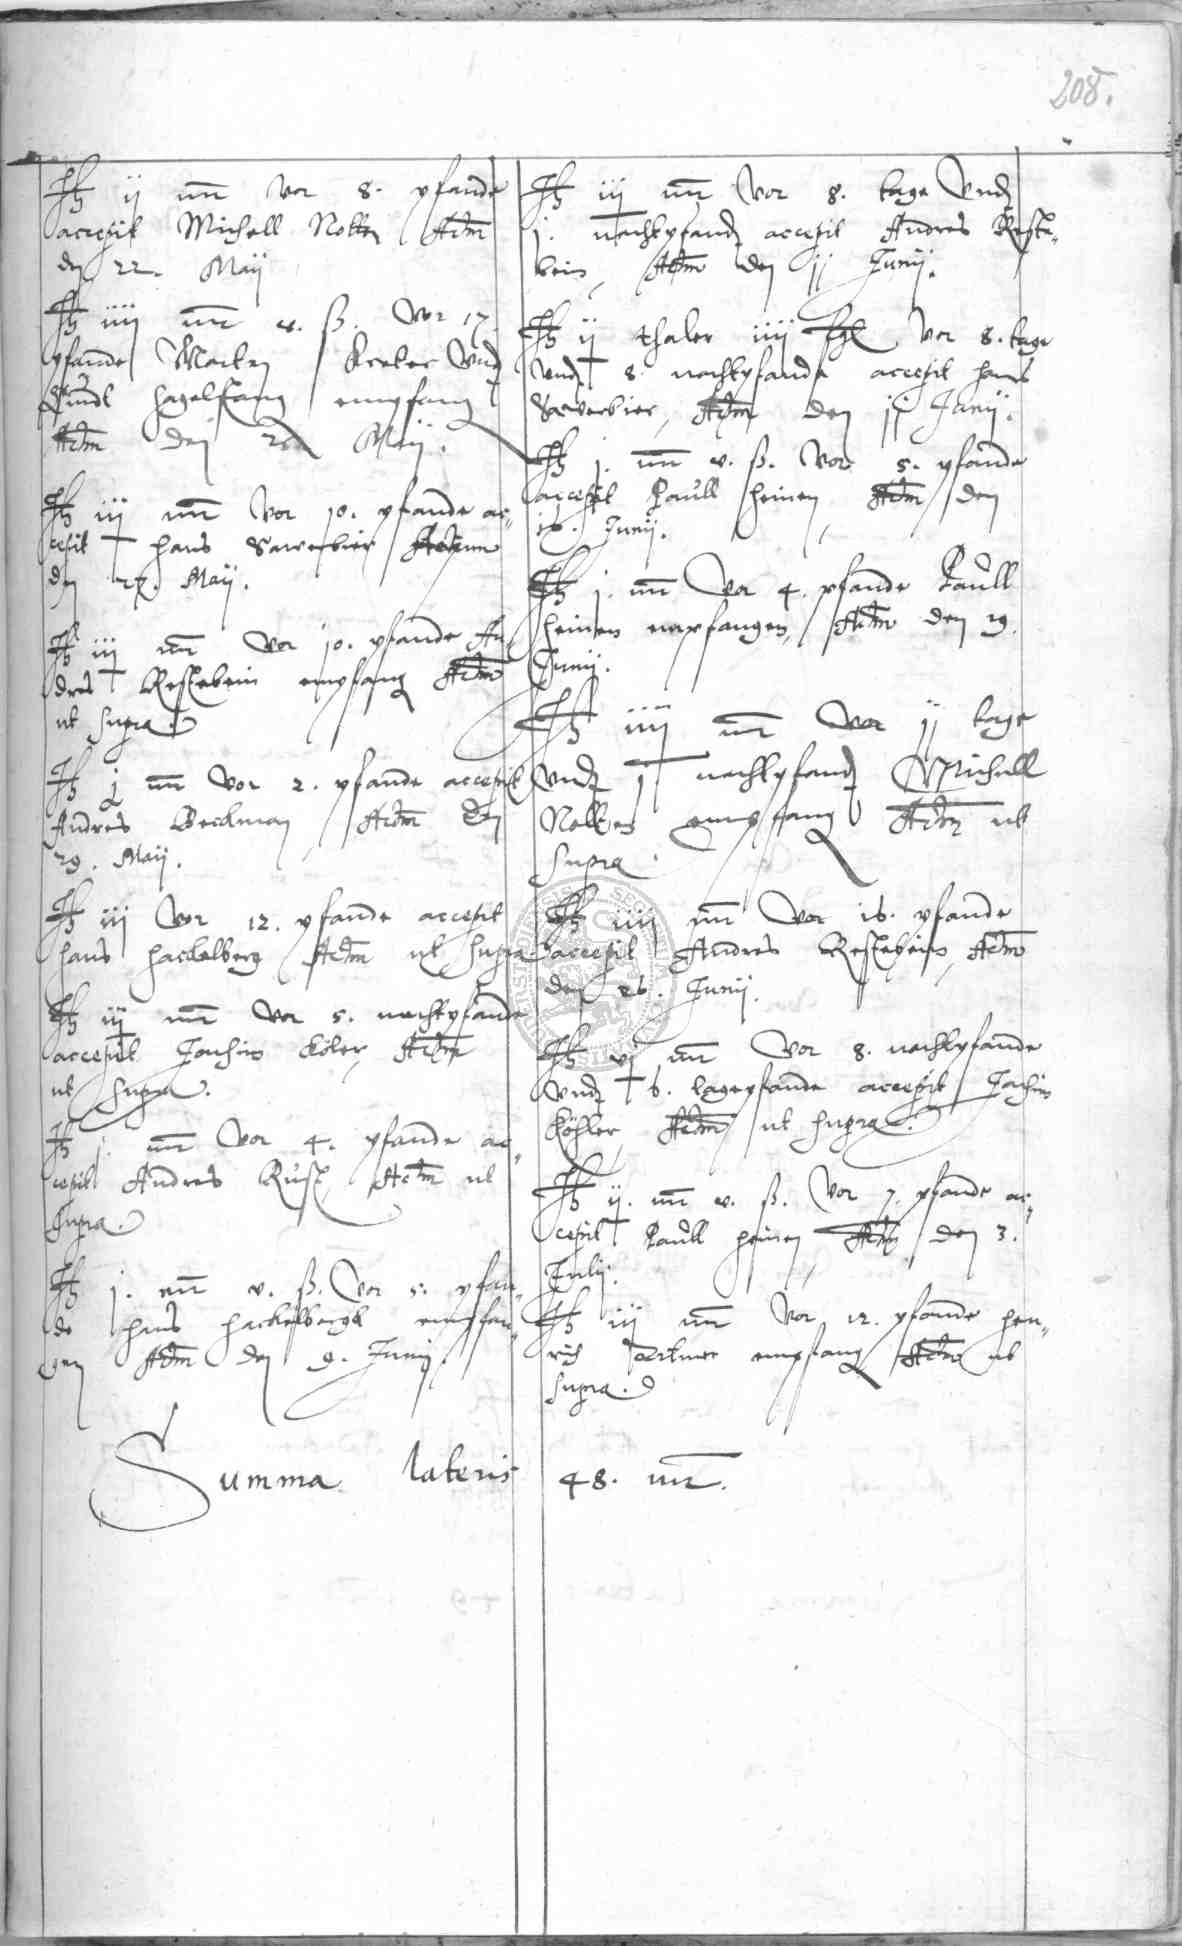 208.
It ij mr vor 8. pfande
accepit Michell Nolten Actm
den 22. Maij
It iiij mr v. ß. vor 17.
pfande Marten Kreter vnd
hagelfang empfang
Actm den Maij.
It iij mr vor 10. pfande ac-
cepit hans Sawerbier Actum
den 27. Maij.
It iij mr vor 10. pfande An
dres Resebein empfang Actm
ut supra
It j mr vor 2. pfande accepit
Andres Beckman Actm den
29. Maij.
It iij vor 12. pfande accepit
hans hackelberg Actm ut supra
It iij mr vor 5. nachtpfande
accepit Jochim Köler, Actm
ut supra.
It j. mr vor 4. pfande ac-
cepit Andres Rust, Actm ut
supra.
It j. mr v. ß. vor 5. pfan-
de hans hackelbergk empfan-
gen Actm den 9. Junij.
It iij mr vor 8. tage vnd
j. nachtpfand accepit Andres Rese-
bein, Actm den jj Junij.
It ij thaler iiij vor 8. tage
vnd 8 nachtpfande accepit hans
Sawerbier, Actm den jj Junij.
It j. mr v. ß. vor 5. pfande
accepit Paull heinen, Actm den
Junij.
It j. mr vor 4. pfande Paull
heinen empfangen, Actm den 19.
Junij.
It iiij mr vor jj tage
vnd j nachtpfand Michell
Nolten empfang Actm ut
supra.
It iiij mr vor 16. pfande
accepit Andres Resebein, Actm
den 26. Junij.
It vj mr vor 8. nachtpfande
vnd 6. tagepfande accepit Jochim
Köhler, Actm ut supra.
It ij. mr v. ß. vor 7. pfande ac-
cepit Paull heinen, Actm den 3.
Julij.
It iij mr vor 12. pfande hen-
rich empfang Actm ut
supra.
Summa lateris 48. mr.